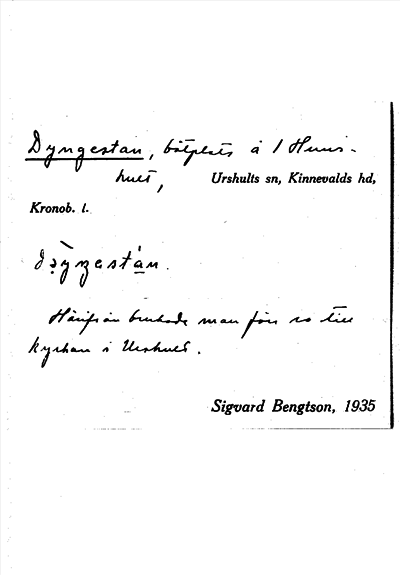 Dyngestan, båtplats å 1 Huns-
hult, Urshults sn, Kinnevalds hd,
Kronob. l.
Härifrån brukade man förr ro till
kyrkan i Urshult.
Sigvard Bengtson, 1935